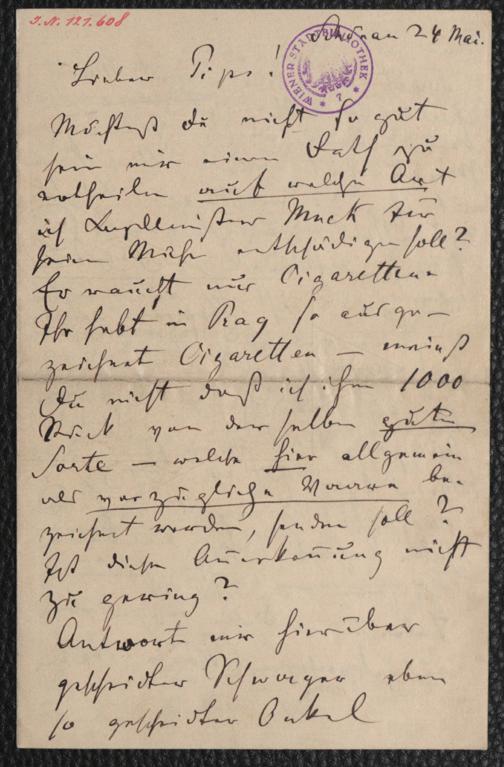 J.N. 121.608
WIENER STADTBIBLIOTHEK
Schönau 24 Mai.
Lieber Pips!
Möchtest du nicht so gut
sein mir einen Rath zu
ertheilen auf welche Art
ich Kapellmeister Muck für
seine Mühe entschädigen soll?
Er raucht nur Cigaretten
Ihr habt in Prag so ausge-
zeichnet Cigaretten — meinst
du nicht daß ich ihm 1000
Stück von der selben guten
Sorte — welche hier allgemein
als vorzügliche Waare be-
zeichnet werden, senden soll?
Ist diese Anerkennung nicht
zu gering?
Antworte mir hierüber
gescheidter Schwager eben
so gescheidter Onkel